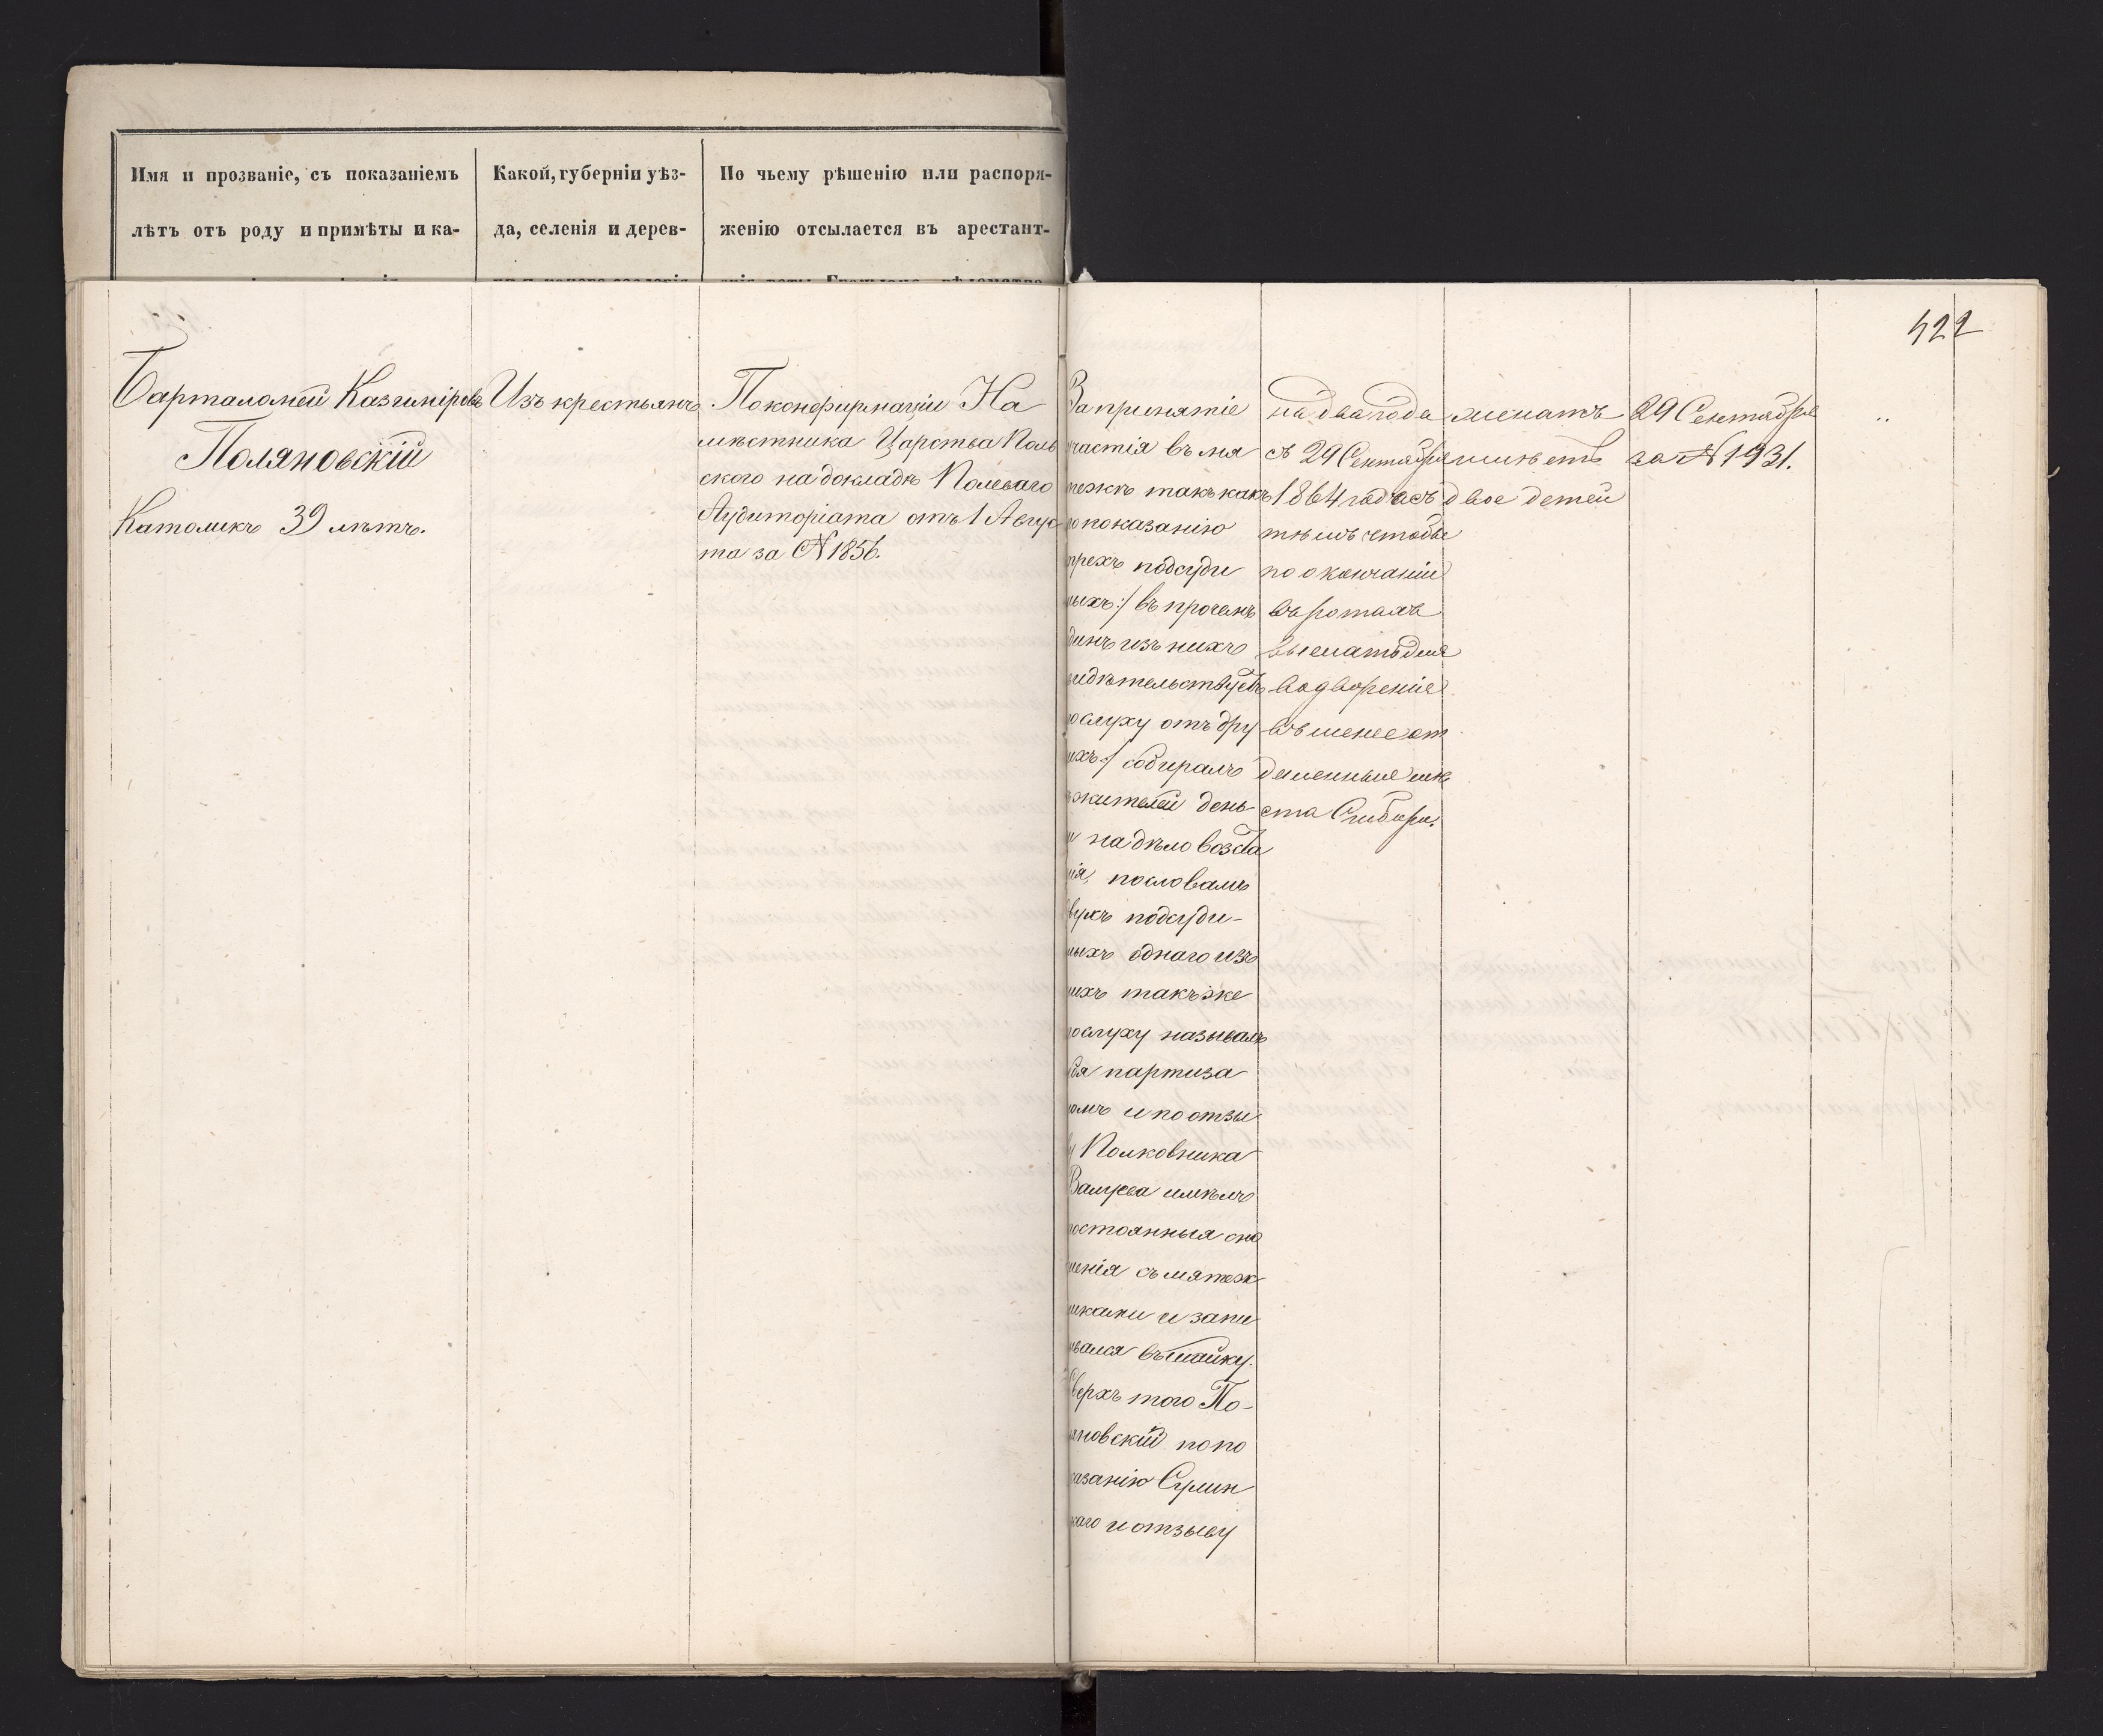 Имя и прозваніе, съ показаніемъ
лѣтъ отъ роду и примѣты и ка-
Какой, губерніи уѣз-
да, селенія и дерев-
По чьему рѣшенію или распоря-
женію отсылается въ арестант-
422
Барталомей Казимiровъ
Поляновскій
Католикъ 39 лѣтъ.
Изъ крестьянъ.
По конфирмаціи На
мѣстника Царства Поль
скаго на докладѣ Полеваго
Аудиторіата отъ 1 Авгус
та за № 1856.
За принятіе
участія въ мя
тежѣ такъ какъ
по показанію
трехъ подсуди
мыхъ :/ въ прочемъ
динъ изъ нихъ
видѣтельствуетъ
ослуху отъ дру
ихъ :/ собиралъ
жителей день
и на дѣло возста
нія, по словамъ
вухъ подсуди-
мыхъ однаго изъ
ихъ такъже
ослуху называлъ
бя партиза
омъ и по отзы
ву Полковника
Валуева имѣлъ
постоянныя сно
шенія съ мятеж
никами и запи
ывался въ шайку.
Сверхъ того По-
яновскій по по
казанію Сулин
каго и отзыву
на два года
съ 29 Сентября
1864 года съ
тѣмъ чтобы
по окончаніи
въ ротахъ
выслать для
водворенія
въ менее от
даленныя мѣ
ста Сибири.
женатъ
имѣетъ
двое детей
29 Сентября
за № 1931.